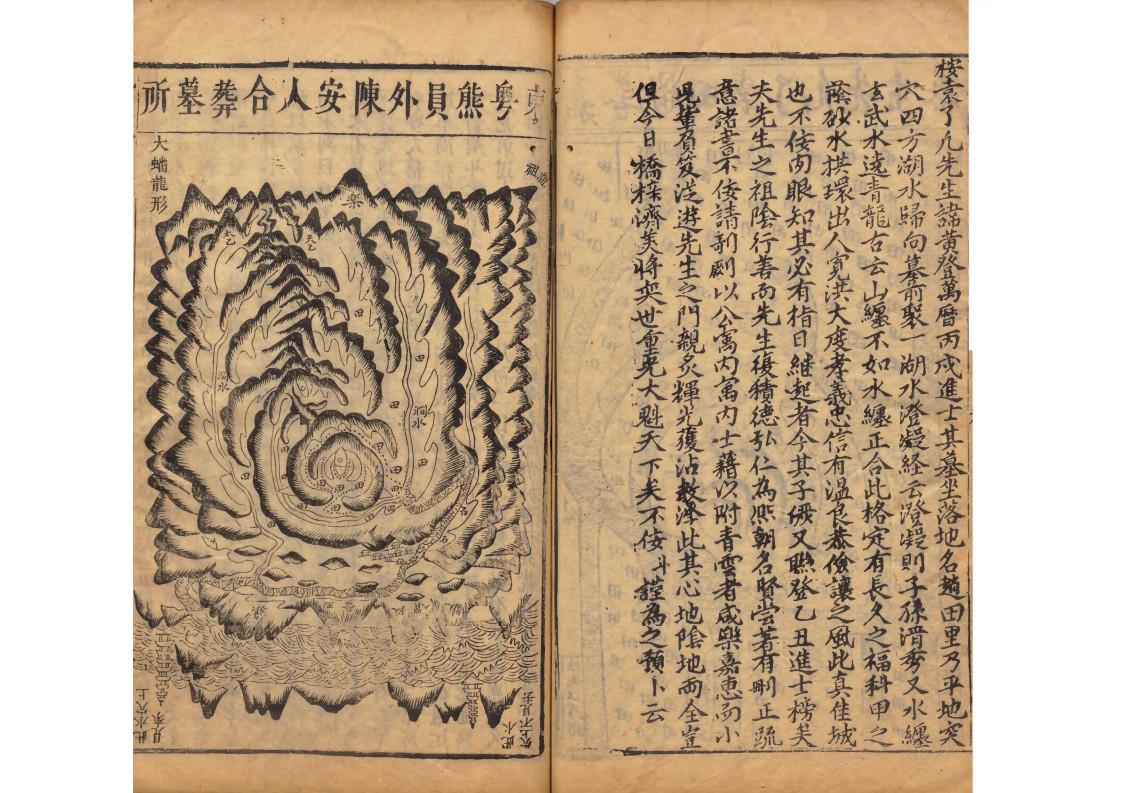 按袁了凡先生諱黄登萬曆丙戌進士其墓坐落地名趙田里乃平地突
穴四方湖水歸向墓前聚一湖水澄凝経云澄凝則子孫清秀又水纏
玄武水遶青龍古云山纏不如水纏正合此格定有長久之福科甲之
蔭砂水拱環出人寛洪大度孝義忠信有温良恭儉讓之風此真佳城
也不佞肉眼知其必有指日継起者今其子儼又聯登乙丑進士榜矣
夫先生之祖陰行善而先生復積德弘仁為熙朝名賢嘗著有刪正疏
意諸書不佞請剞劂以公寓内寓内士藉以附青雲者咸樂嘉恵而小
児輩負笈従遊先生之門親炙輝光獲沾教澤此其心地陰地両全豈
但今日橋梓濟美將奕世重光大魁天下矣不佞斗謹為之預卜云
東粤熊員外陳安人合葬墓所
祖
楽
天乙
天乙
大蟠龍形
澗水
澗水
田
田
田
田
田
田
田
田
田
此水
穴上不見去
此水穴上
見來